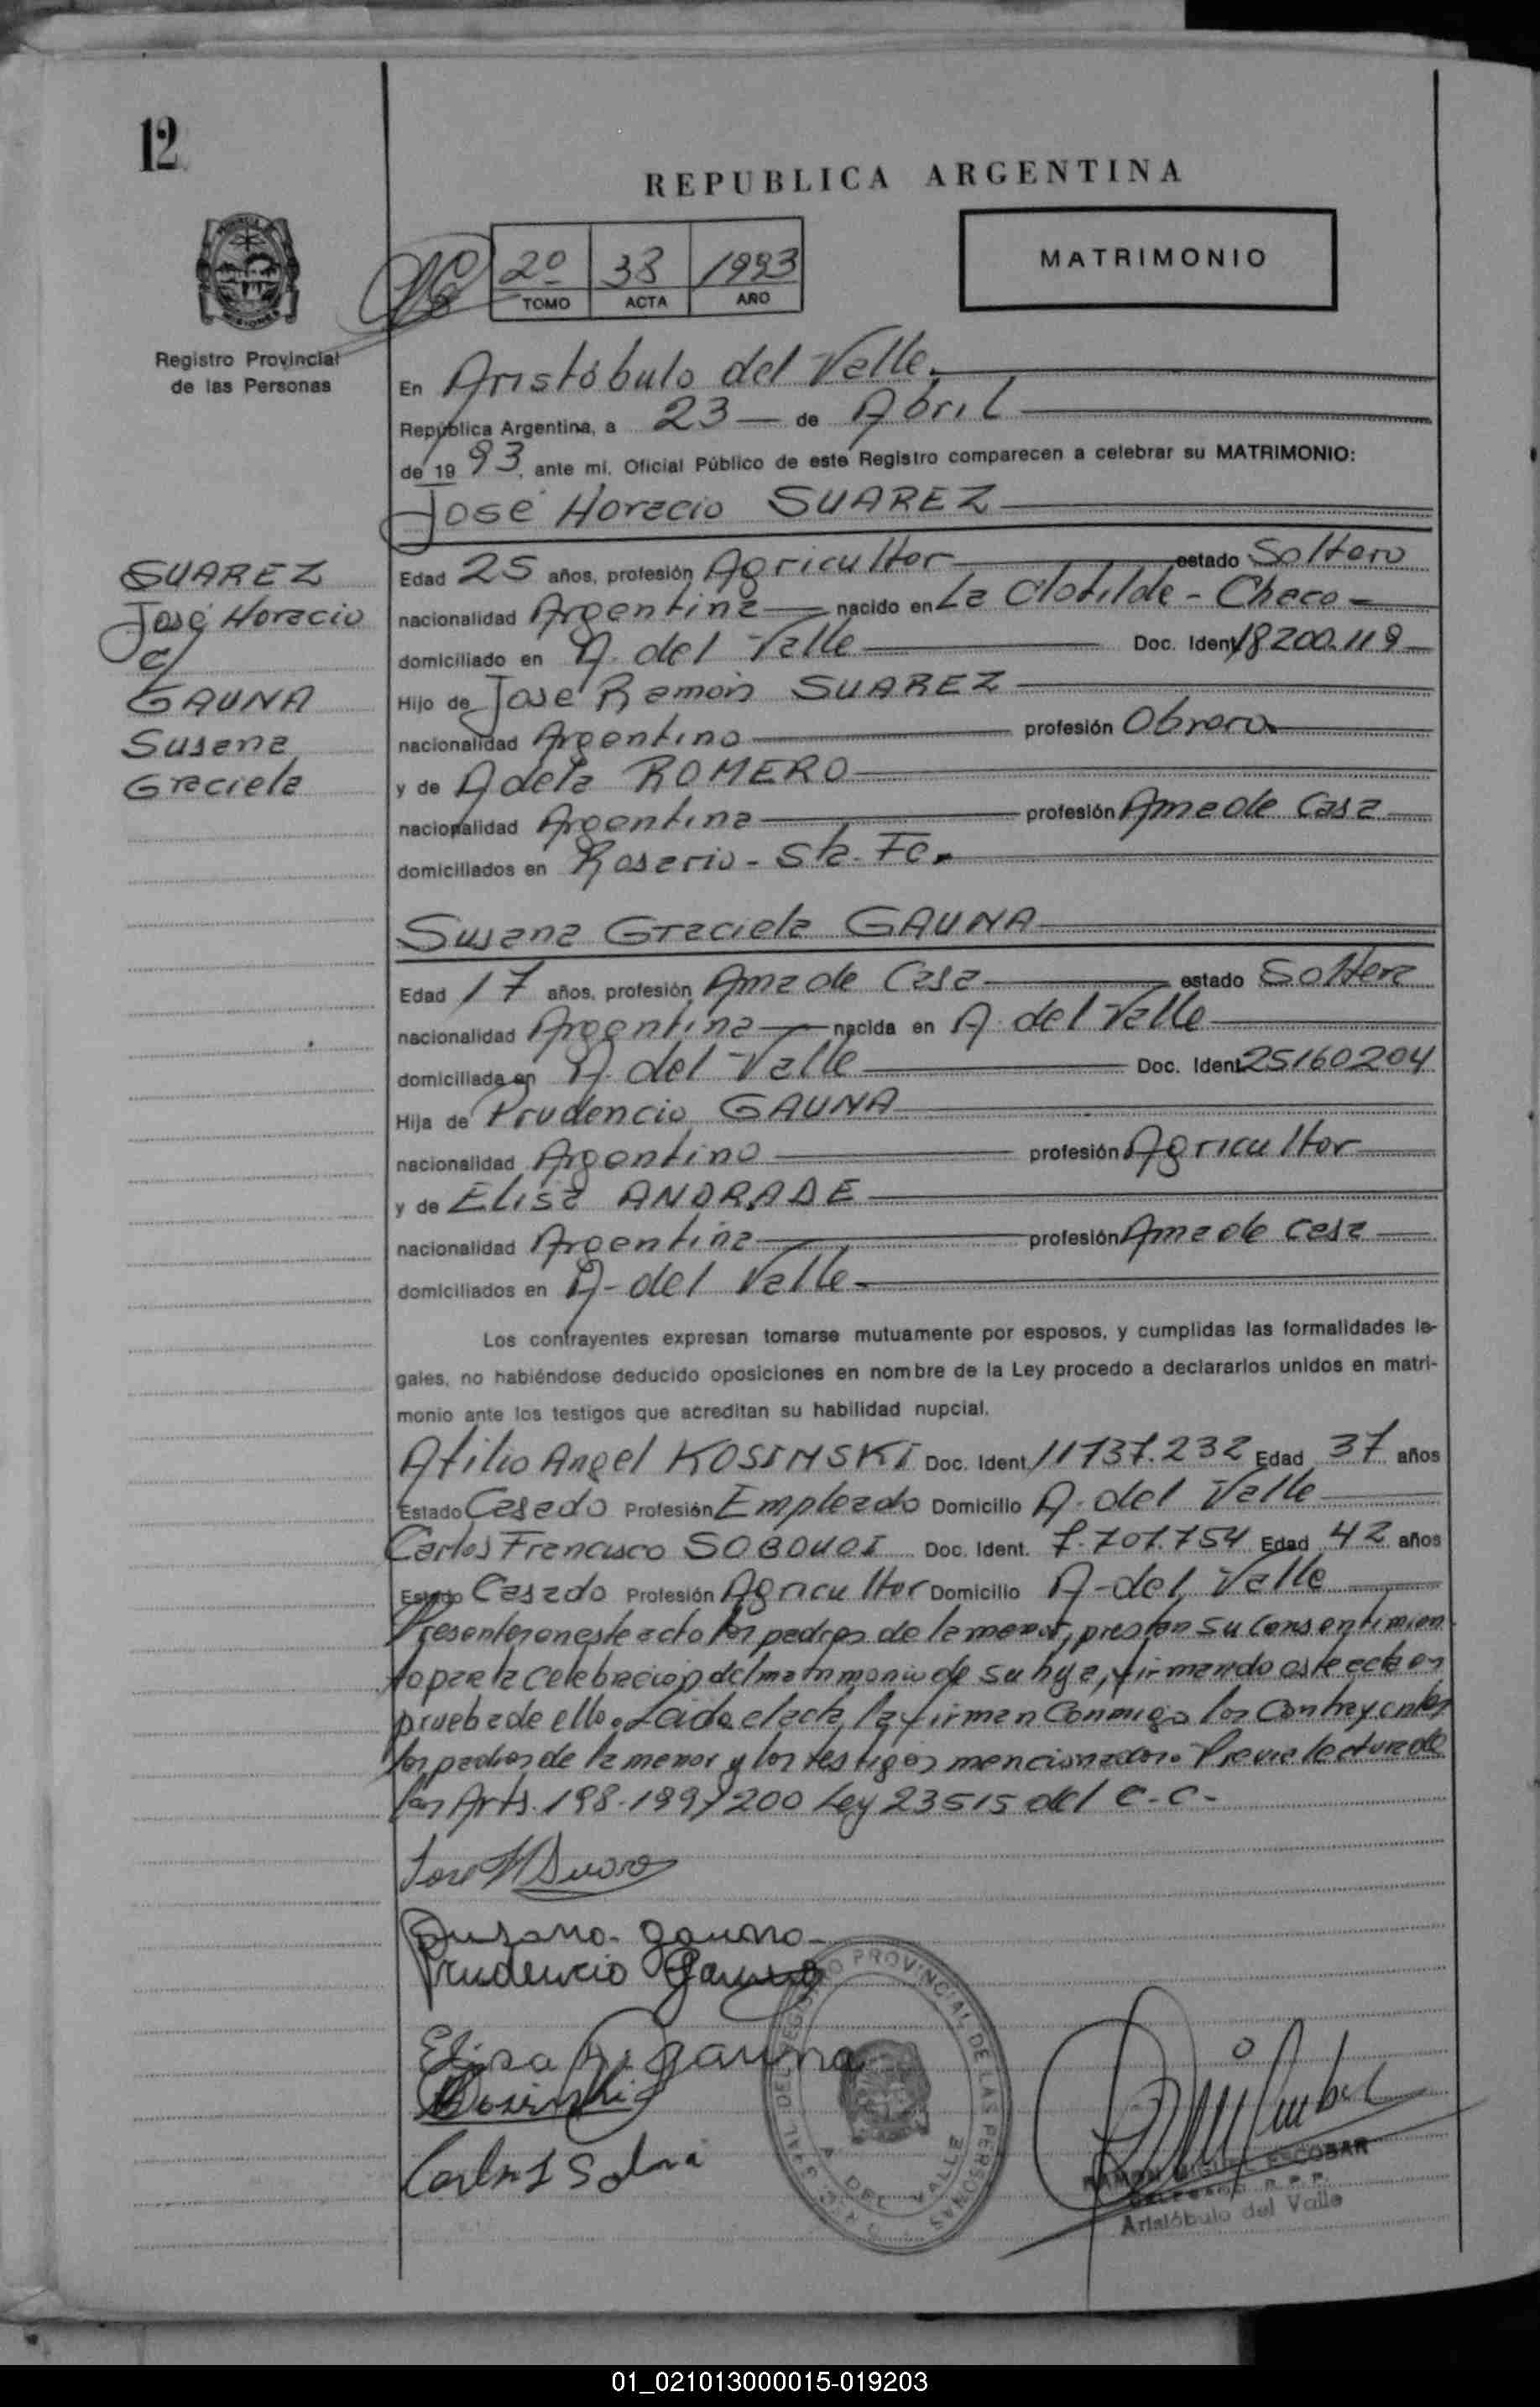 12
REPUBLICA ARGENTINA
2º 38 1993
TOMO ACTA AÑO
MATRIMONIO
Registro Provincial
de las Personas
En Aristóbulo del Valle.
República Argentina, a 23 de Abril
de 1993, ante mi, Oficial Público de este Registro comparecen a celebrar su MATRIMONIO:
José Horacio SUAREZ
SUAREZ
José Horacio
c/
GAUNA
Susana
Graciela
Edad 25 años, profesión Agricultor estado Soltero
nacionalidad Argentina nacido en La Clotilde - Chaco -
domiciliado en A. del Valle Doc. Ident. 18200.119
Hijo de José Ramón SUAREZ
nacionalidad Argentino profesión Obrero
y de Adela ROMERO
nacionalidad Argentina profesión Ama de Casa
domiciliados en Rosario - Sta. Fe.
Susana Graciela GAUNA
Edad 17 años, profesión Ama de Casa estado Soltera
nacionalidad Argentina nacida en A. del Valle
domiciliada en A. del Valle Doc. Ident. 25160204
Hija de Prudencio GAUNA
nacionalidad Argentino profesión Agricultor
y de Elisa ANDRADE
nacionalidad Argentina profesión Ama de casa
domiciliados en A- del Valle
Los contrayentes expresan tomarse mutuamente por esposos, y cumplidas las formalidades le-
gales, no habiéndose deducido oposiciones en nombre de la Ley procedo a declararlos unidos en matri-
monio ante los testigos que acreditan su habilidad nupcial.
Atilio Angel KOSINSKI Doc. Ident. 11737.232 Edad 37 años
Estado Casado Profesión Empleado Domicilio A. del Valle
Carlos Francisco Doc. Ident. 7.707.754 Edad 42 años
Estado Casado Profesión Agricultor Domicilio A- del Valle
Presentes en este acto los padres de la menor, prestan su consentimien
to para la celebración del matrimonio de su hija, firmando este acta en
prueba de ello. Leida el acta, la firman conmigo los Contrayentes
los padres de la menor y los testigos mencionados. Previa lectura de
los Arts. 198-199 y 200 Ley 23515 del C.C.-
Jose H Suarez
Susana Gauna
Prudencio Gauna
Elisa A. Gauna
Kosinski
REGISTRO PROVINCIAL DE LAS PERSONAS
A. DEL VALLE
RAMON MIGUEL ESCOBAR
DELEGADO R.P.P.
Aristóbulo del Valle
01_021013000015-019203